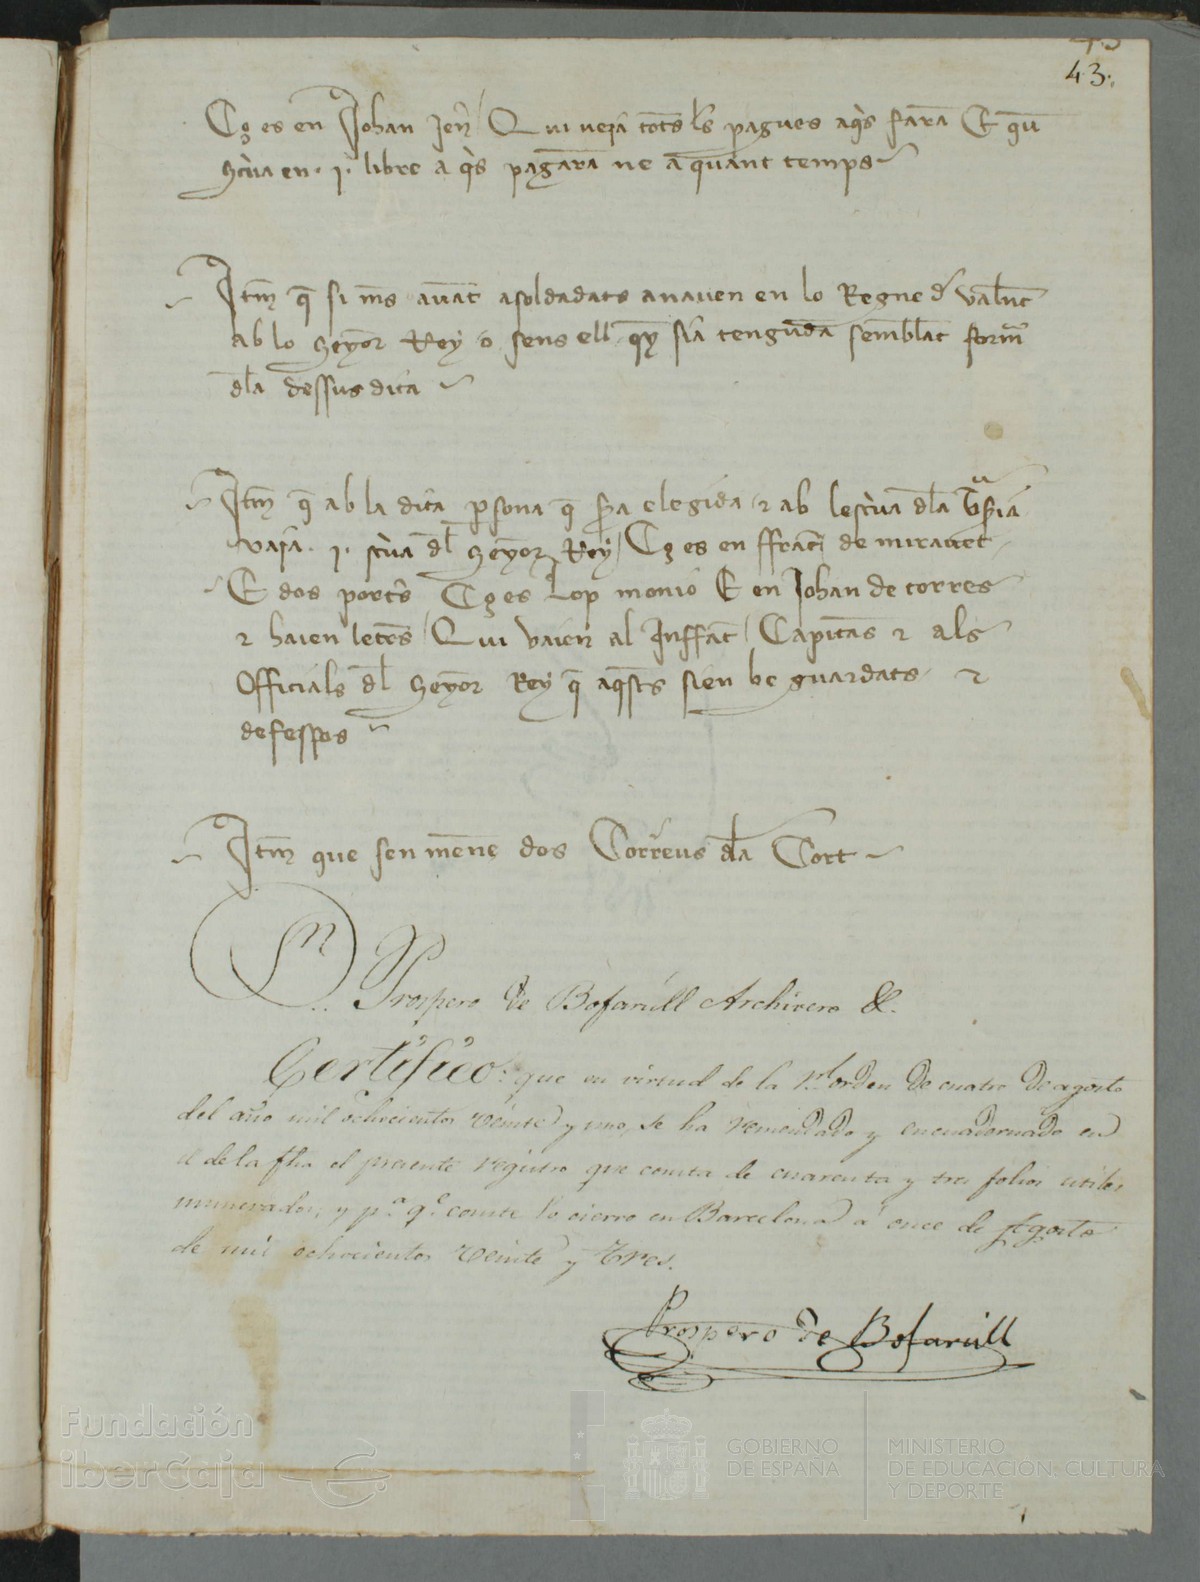 43
43.
Ço es en Johan Jenr̄ / Qui veja tots ls pagues aq̄s fara Et q̄n
Sc̀va en .j. libre a q̄s pagara ne a quant temps
Itm̄ q̄ si m̄s auāt asoldadats anauen en lo Regne d̄ Val̄nc
ab lo Seyor Rey o sens ell q̄ sia tenguda sembl̄āt form̄
dl̄a dessus dita
Itm̄ q̄ ab la dita p̄sona q̄ s̄ra elegida ⁊ ab lesc̀va dl̄a
vaja .j. sc̀va dl̄ Seyor Rey / Ço es en ffrāc̄ de mirauet
E dos port̄s Ço es Lop monio E en Johan de torres
⁊ haien letr̄s / Qui vaien al Inffāt / Capitas ⁊ als
Officials dl̄ Seyor Rey q̄ aq̄sts sien be guardats ⁊
defespos
Itm̄ que sen mene dos Correus dl̄a Cort
Dn Prospero de Bofarúll Archivero &.
Certifico: que en virtud de la rl orden de cuatro de agosto
del año mil ochocientos veinte y uno, se ha remendado y encuadernado en
el de la fha el presente registro que consta de cuarenta y tres folios utiles
numerados; y pa. qe. conste lo cierro en Barcelona á once de Agosto
de mil ochocientos veinte y tres.
Prospero de Bofarúll
Fundación
iberCaja
GOBIERNO
DE ESPAÑA
MINISTERIO
DE EDUCACIÓN, CULTURA
Y DEPORTE